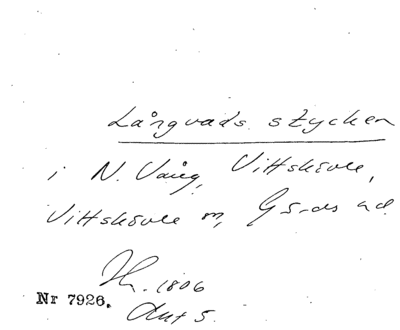 Långvads stycken
i N. Vång, Vittskövle,
Vittskövle sn, Gärds hd.
1806
Nr 7926. Akt 5.